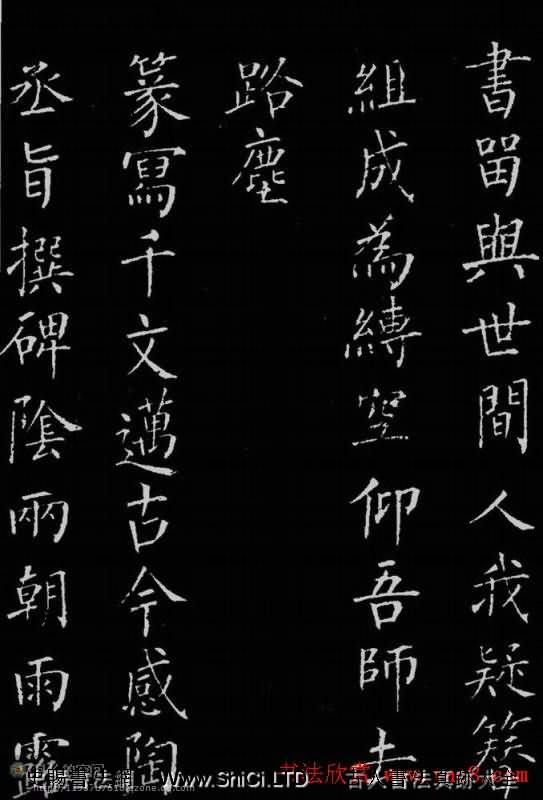 書留與世間人我疑簪
組成為縛空仰吾師去
路塵
篆寫千文邁古今感陶
丞旨撰碑陰兩朝雨露
书法欣赏
www.ShiCi.LTD
古人書法真跡大全